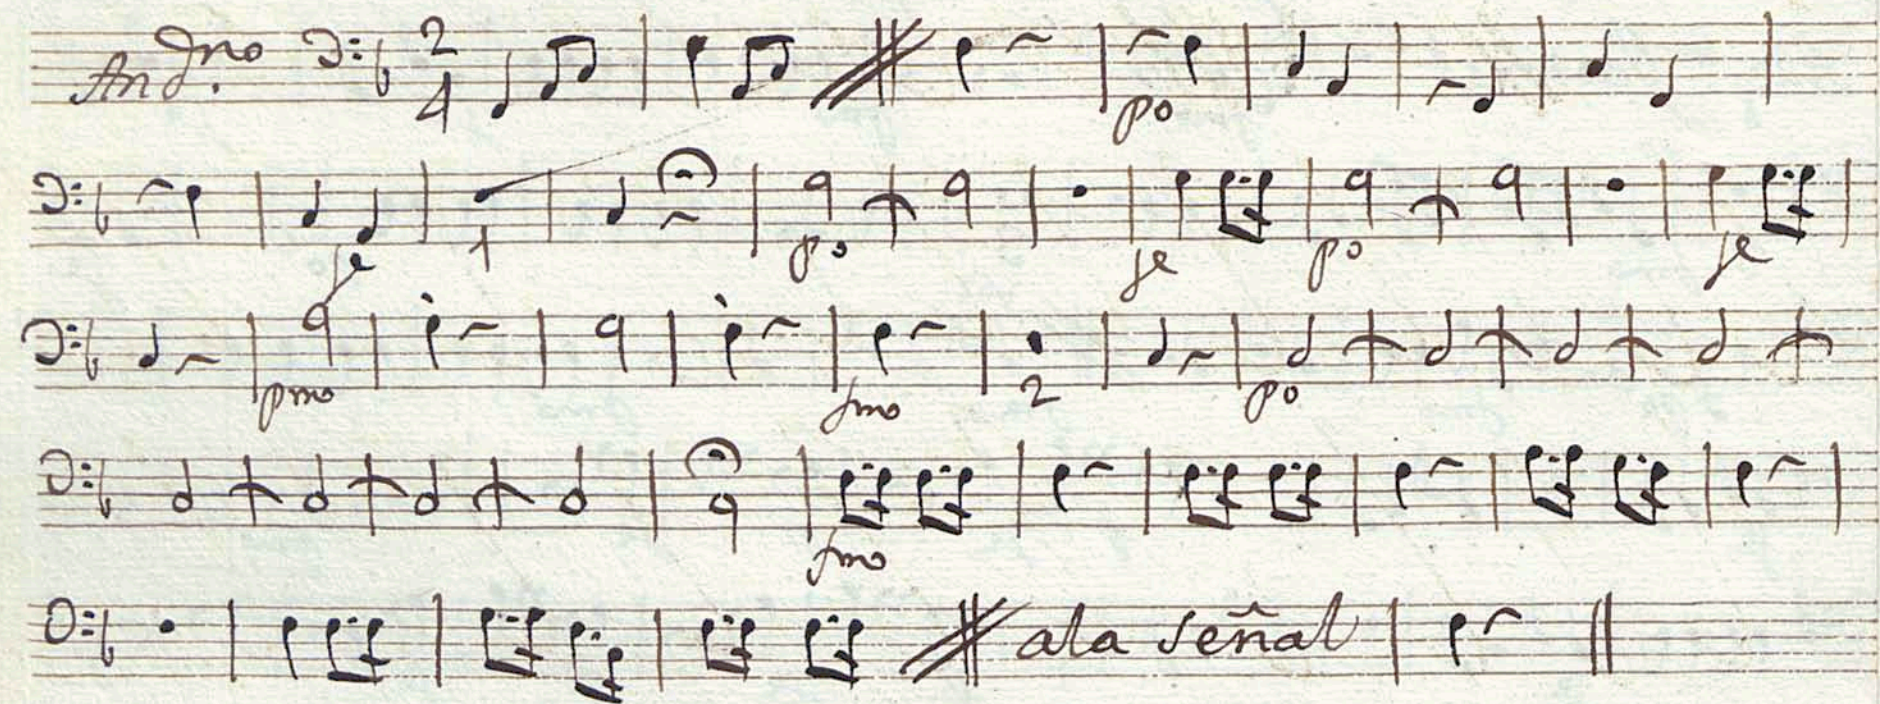 And.no 2 4
po
fe po fe po fe
pmo fmo 2 po
fmo
ala señal